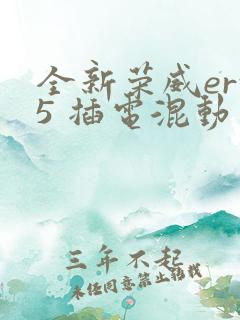 全新荣威er
5 插电混动
三年不起
未经同意禁止转载